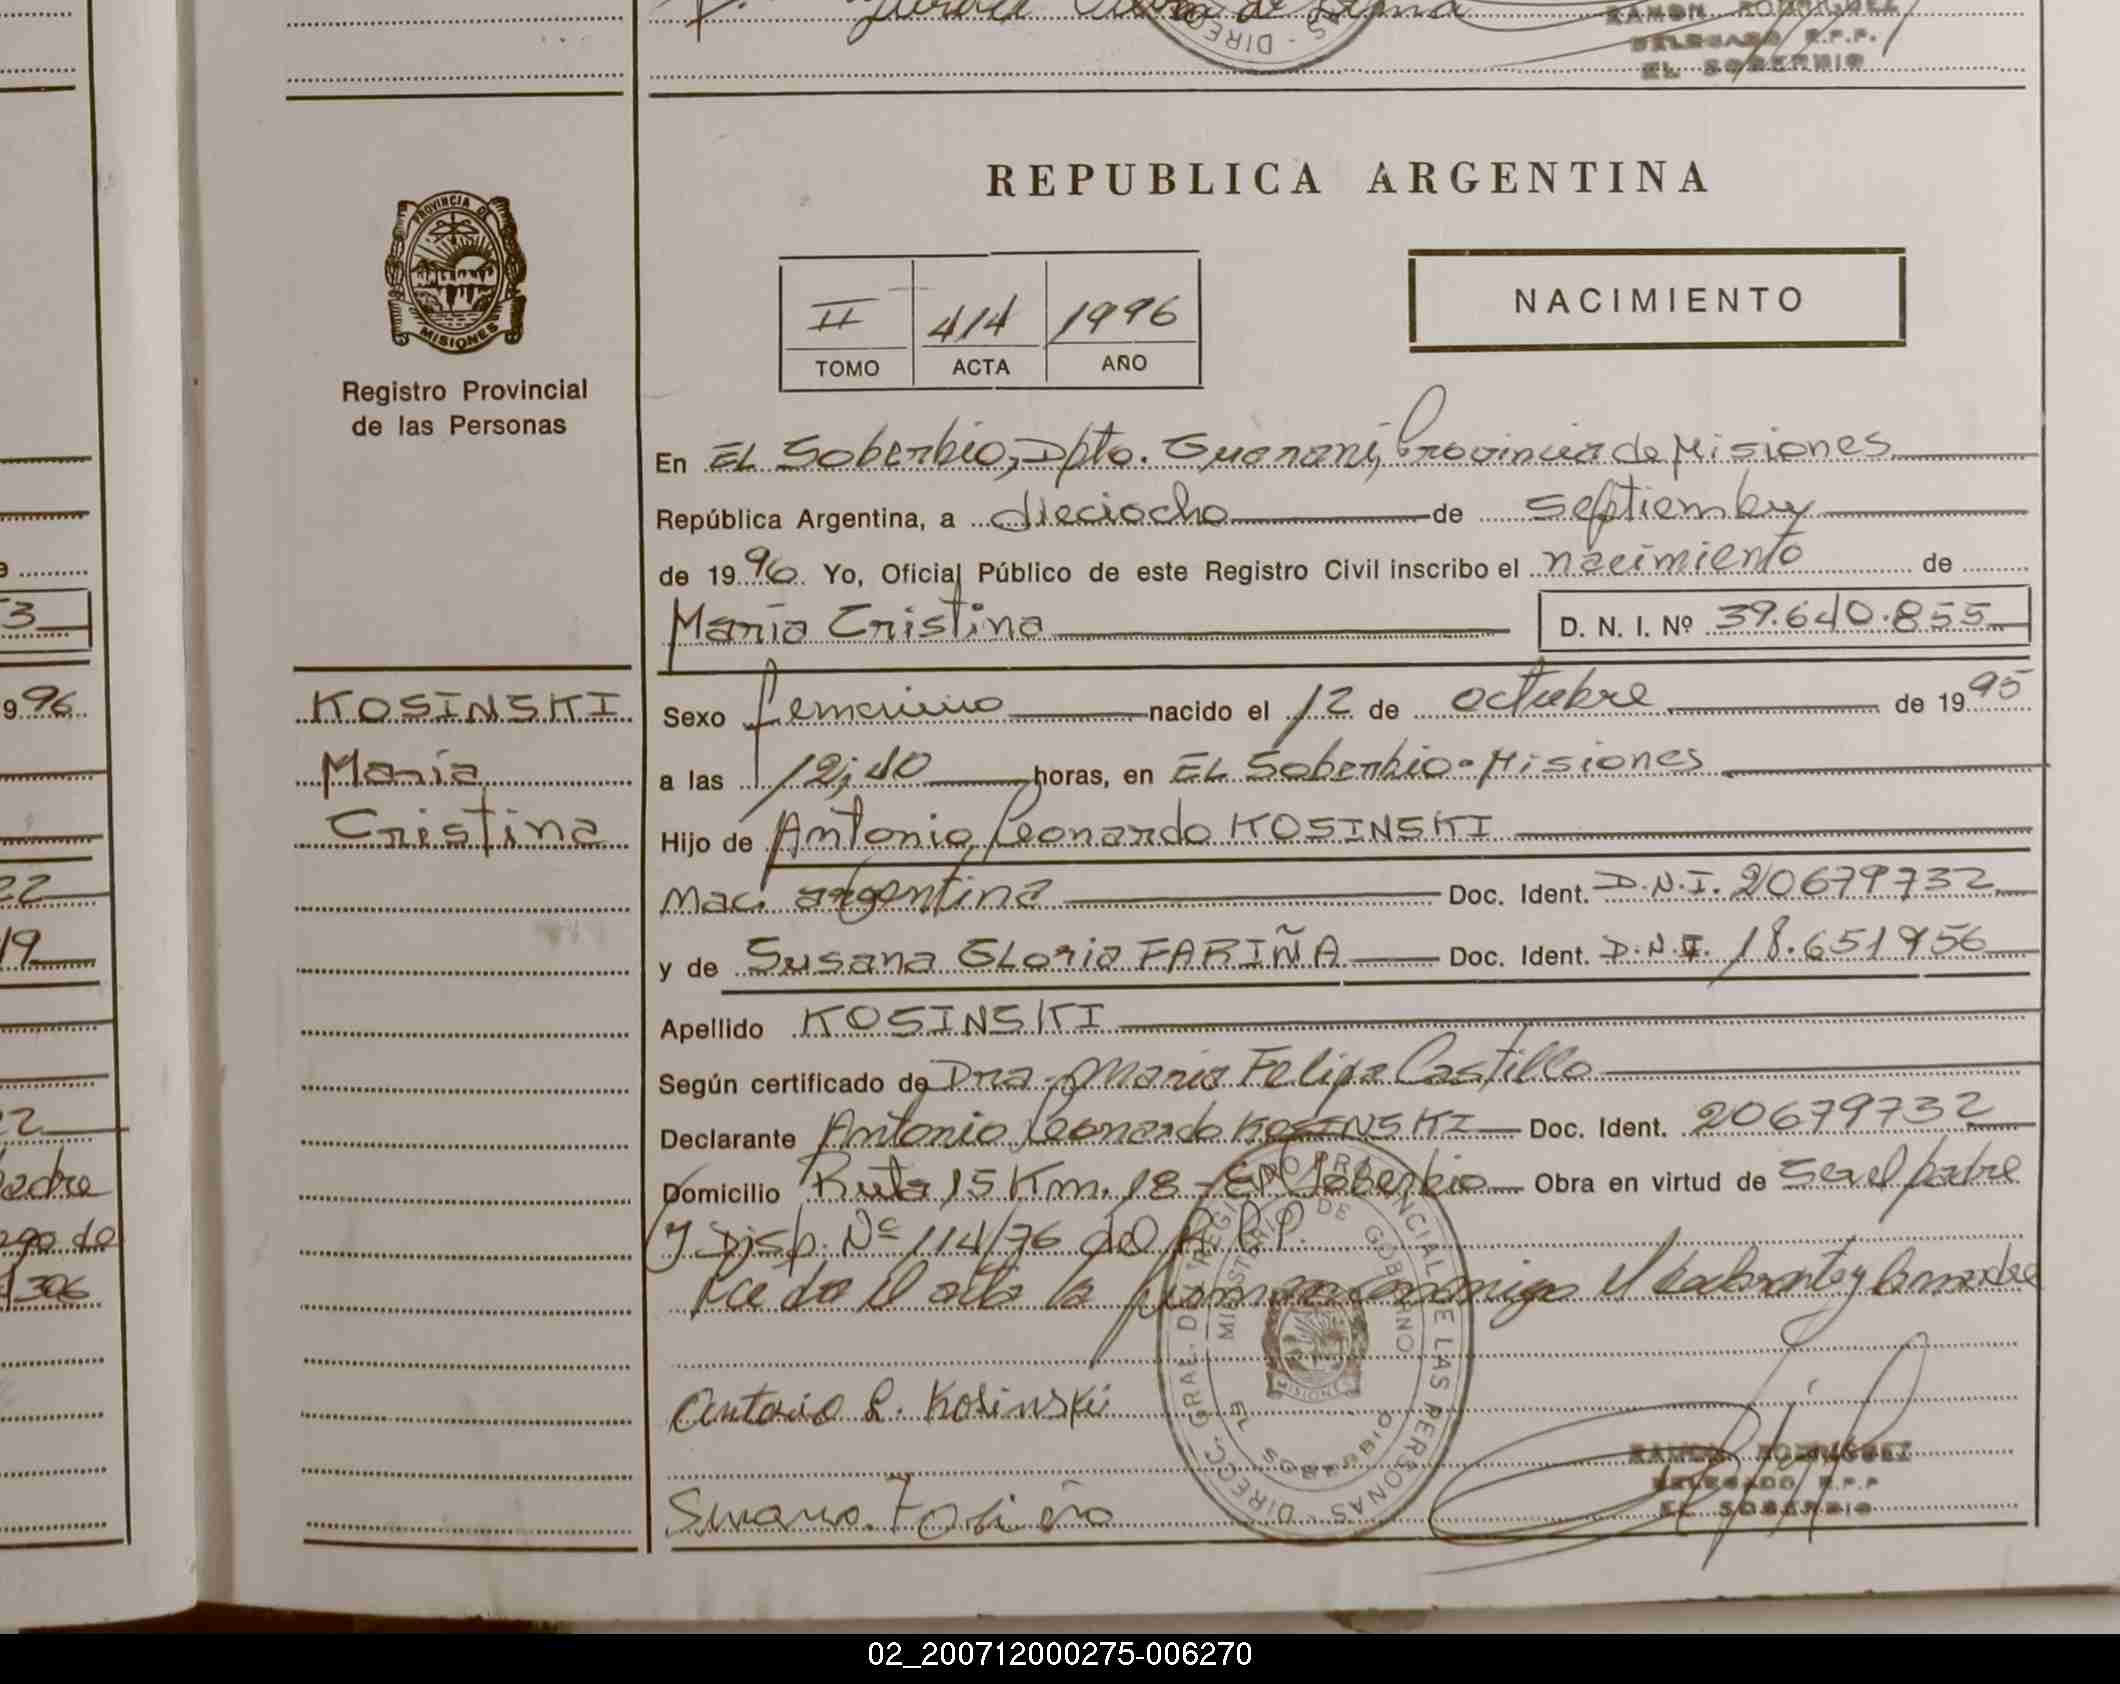 RAMON RODRIGUEZ
DELEGADO R.P.P.
EL SOBERBIO
REPUBLICA ARGENTINA
PROVINCIA DE
MISIONES
Registro Provincial
de las Personas
II 414 1996
TOMO ACTA AÑO
NACIMIENTO
En EL Soberbio, Dpto. Guarani, Provincia de Misiones
República Argentina, a dieciocho de septiembre
de 1996 Yo, Oficial Público de este Registro Civil inscribo el nacimiento de
María Cristina D. N. I. Nº 39.640.855
KOSINSKI
María
Cristina
Sexo femenino nacido el 12 de octubre de 1995
a las 12,40 horas, en EL Soberbio - Misiones
Hijo de Antonio Leonardo KOSINSKI
Nac. argentina Doc. Ident. D.N.I. 20679732
y de Susana GLoria FARIÑA Doc. Ident. D.N.I. 18.651956
Apellido KOSINSKI
Según certificado de Dra. Maria Felipa Castillo
Declarante Antonio Leonardo KOSINSKI Doc. Ident. 20679732
Domicilio Ruta 15 Km. 18 - El Soberbio Obra en virtud de ser el padre
y Disp. Nº 114/76 del R.P.P.
el acta la firman conmigo el declarante y la madre
Antonio L. Kosinski
Susana Fariña
DIRECC. GRAL. DEL REGISTRO PROVINCIAL DE LAS PERSONAS
MINISTERIO DE GOBIERNO
MISIONES
EL SOBERBIO
RAMON RODRIGUEZ
DELEGADO R.P.P
EL SOBERBIO
96
22
19
306
02_200712000275-006270